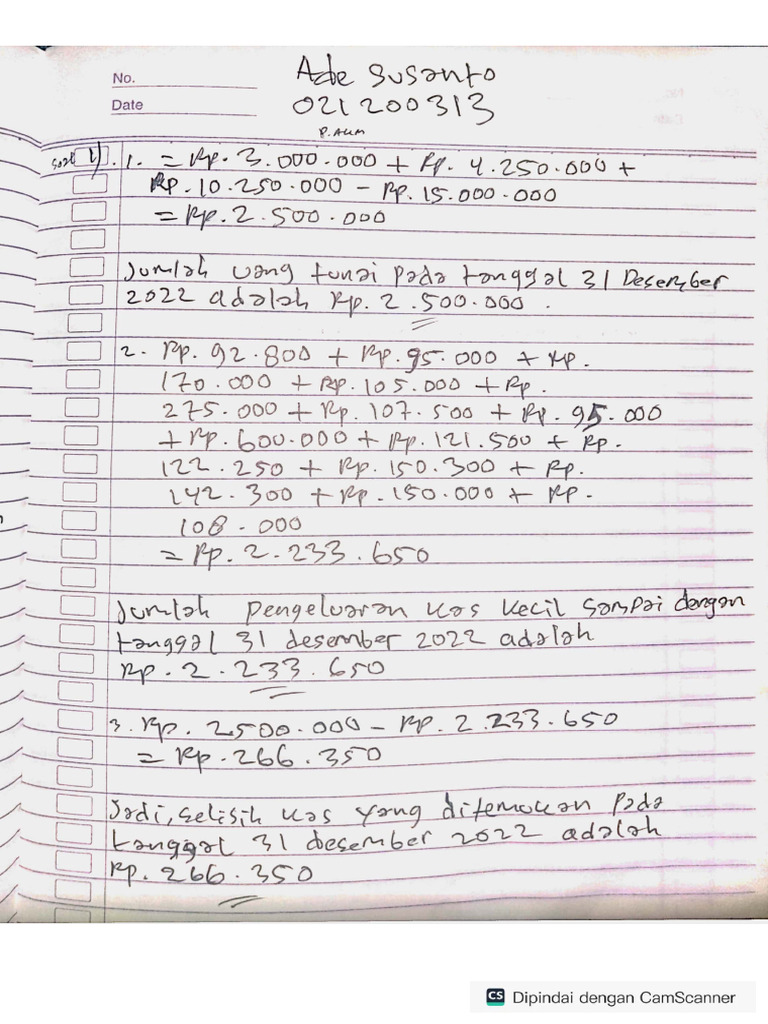 No.
Date
Ade Susanto
021200313
P. Akm
Soal 1). 1. = Rp. 3.000.000 + Rp. 4.250.000 +
Rp. 10.250.000 - Rp. 15.000.000
= Rp. 2.500.000
Jumlah uang tunai pada tanggal 31 Desember
2022 adalah Rp. 2.500.000.
2. Rp. 92.800 + Rp. 95.000 + Rp.
170.000 + Rp. 105.000 + Rp.
275.000 + Rp. 107.500 + Rp. 95.000
+ Rp. 600.000 + Rp. 121.500 + Rp.
122.250 + Rp. 150.300 + Rp.
142.300 + Rp. 150.000 + Rp.
108.000
= Rp. 2.233.650
Jumlah pengeluaran kas kecil sampai dengan
tanggal 31 desember 2022 adalah
Rp. 2.233.650
3. Rp. 2500.000 - Rp. 2.233.650
= Rp. 266.350
Jadi, selisih kas yang ditemukan pada
tanggal 31 desember 2022 adalah
Rp. 266.350
CS Dipindai dengan CamScanner